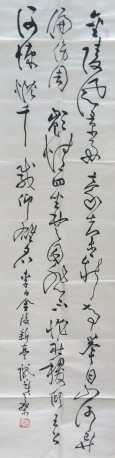 金陵風景好豪士集新亭舉目山河異
偏傷周顗情四坐楚囚悲不憂社稷傾王公
何慷慨千載仰雄名 李白金陵新亭